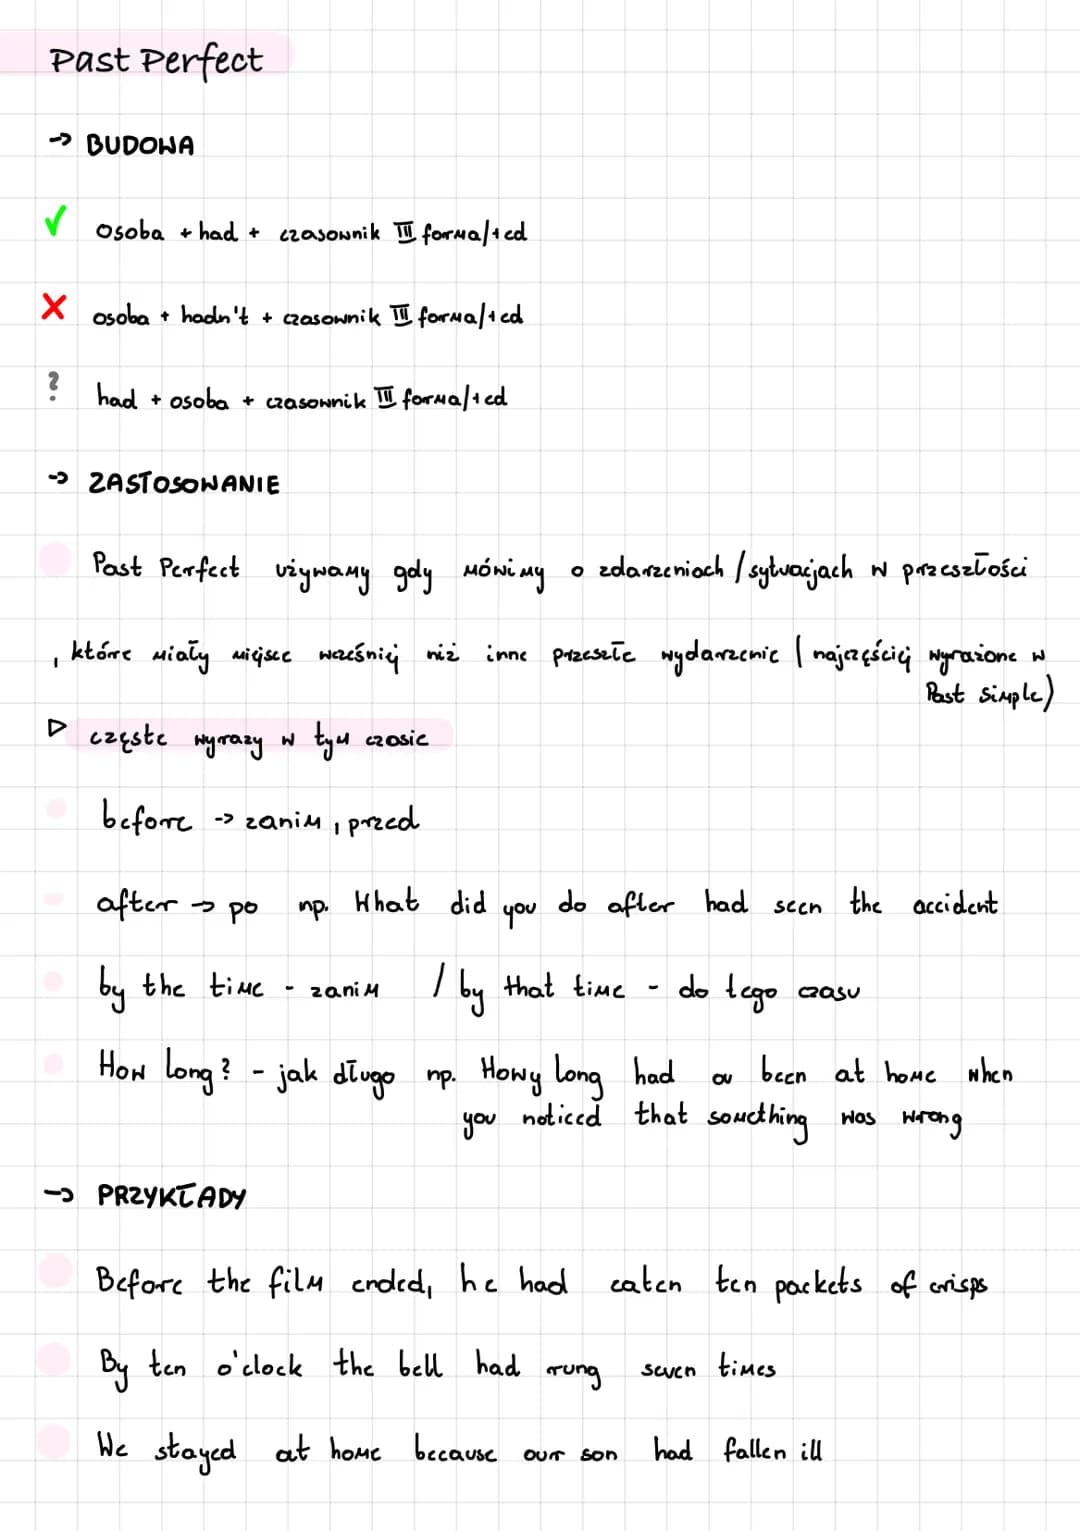 Past Perfect
→ BUDOWA
✓ osoba + had + czasownik III forma/+ed
✗ osoba + hadn't + czasownik III forma/+ed
? had + osoba + czasownik III forma/+ed
→ ZASTOSOWANIE
Past Perfect używamy gdy mówimy o zdarzeniach / sytuacjach w przeszłości
, które miały miejsce wcześniej niż inne przeszłe wydarzenie (najczęściej wyrażone w
Past Simple)
▷ częste wyrazy w tym czasie
before -> zanim, przed
after → po np. What did you do after had seen the accident
by the time - zanim / by that time - do tego czasu
How long? - jak długo np. Howy long had ou been at home when
you noticed that something was wrong
→ PRZYKŁADY
Before the film ended, he had eaten ten packets of crisps
By ten o'clock the bell had rung seven times
We stayed at home because our son had fallen ill